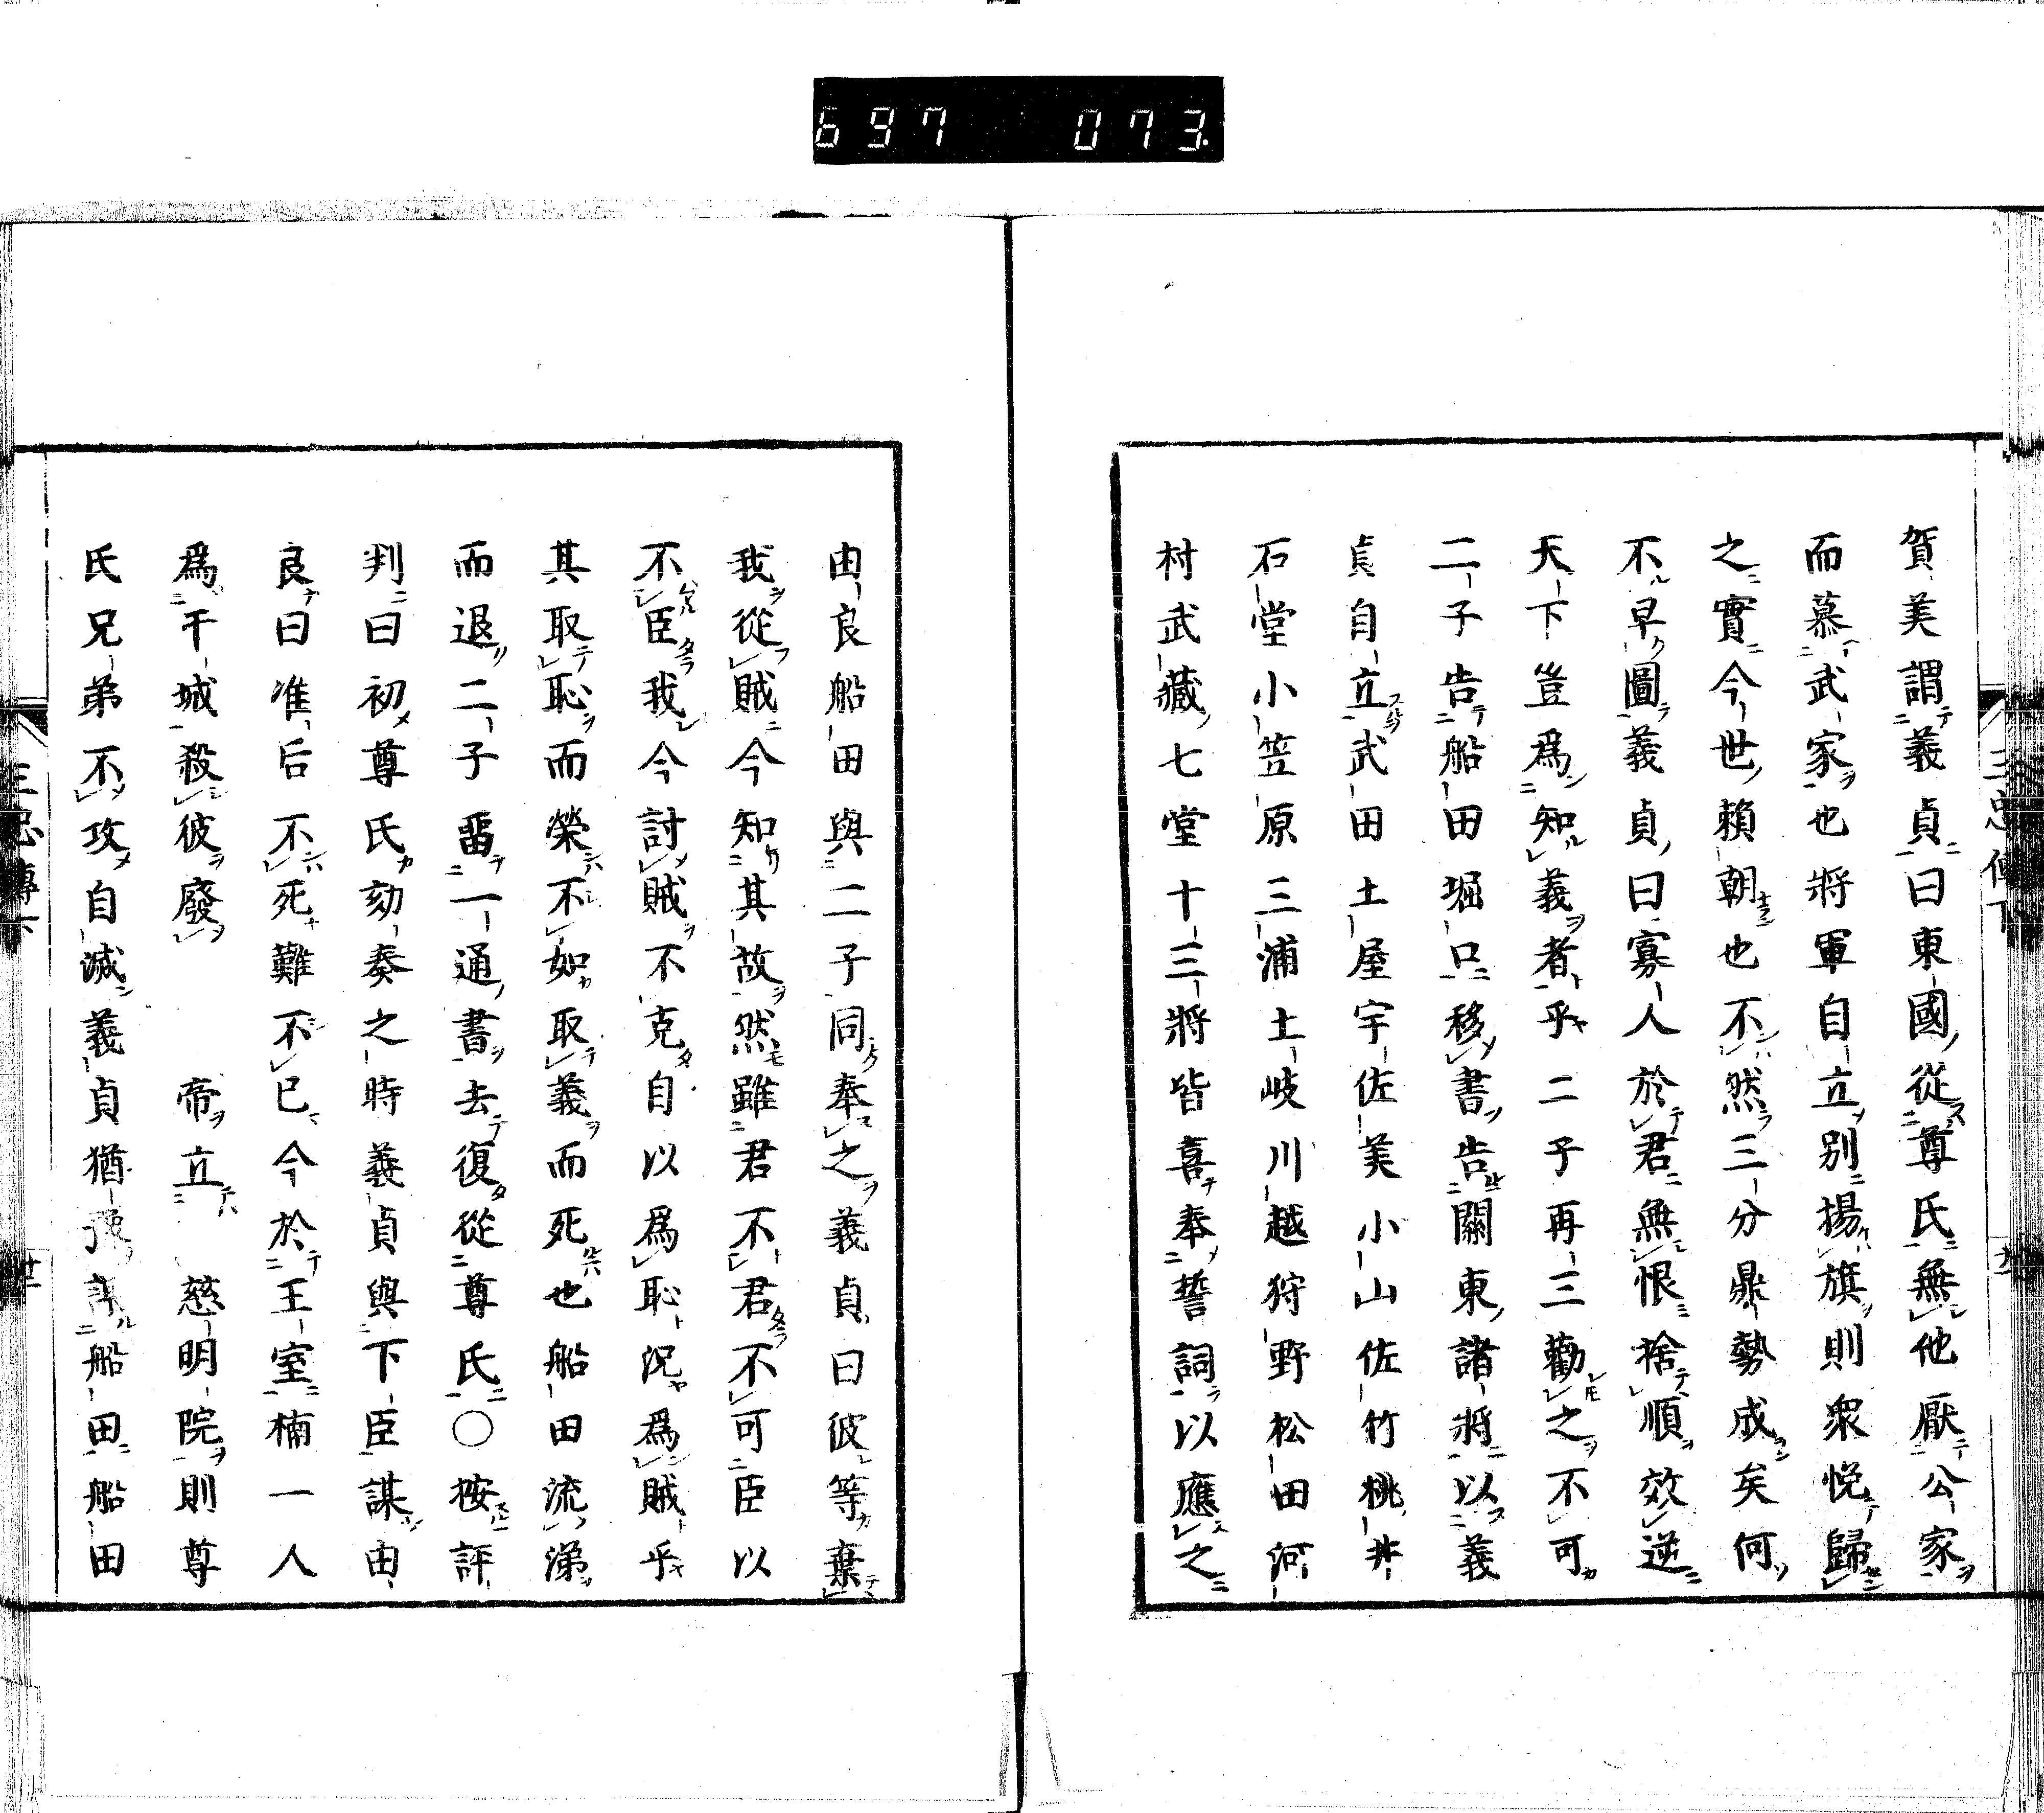 697 073
賀美謂義貞曰東國從尊氏無他厭公家
而慕武家也將軍自立別揚旗則衆悦歸
之實今世賴朝也不然三分鼎勢成矣何
不早圖義貞曰寡人於君無恨捨順效逆
天下豈爲知義者乎二子再三勸之不可
二子告船田堀口移書告關東諸將以義
貞自立武田土屋宇佐美小山佐竹桃井
石堂小笠原三浦土岐川越狩野松田河
村武藏七堂十三將皆喜奉誓詞以應之
由良船田與二子同奉之義貞曰彼等棄
我從賊今知其故然雖君不君不可臣以
不臣我今討賊不克自以爲恥況爲賊乎
其取恥而榮不如取義而死也船田流涕
而退二子畱一通書去復從尊氏〇按評
判曰初尊氏劾奏之時義貞與下臣謀由
良曰准后不死難不已今於王室楠一人
爲干城殺彼廢 帝立 慈明院則尊
氏兄弟不攻自滅義貞猶船田船田